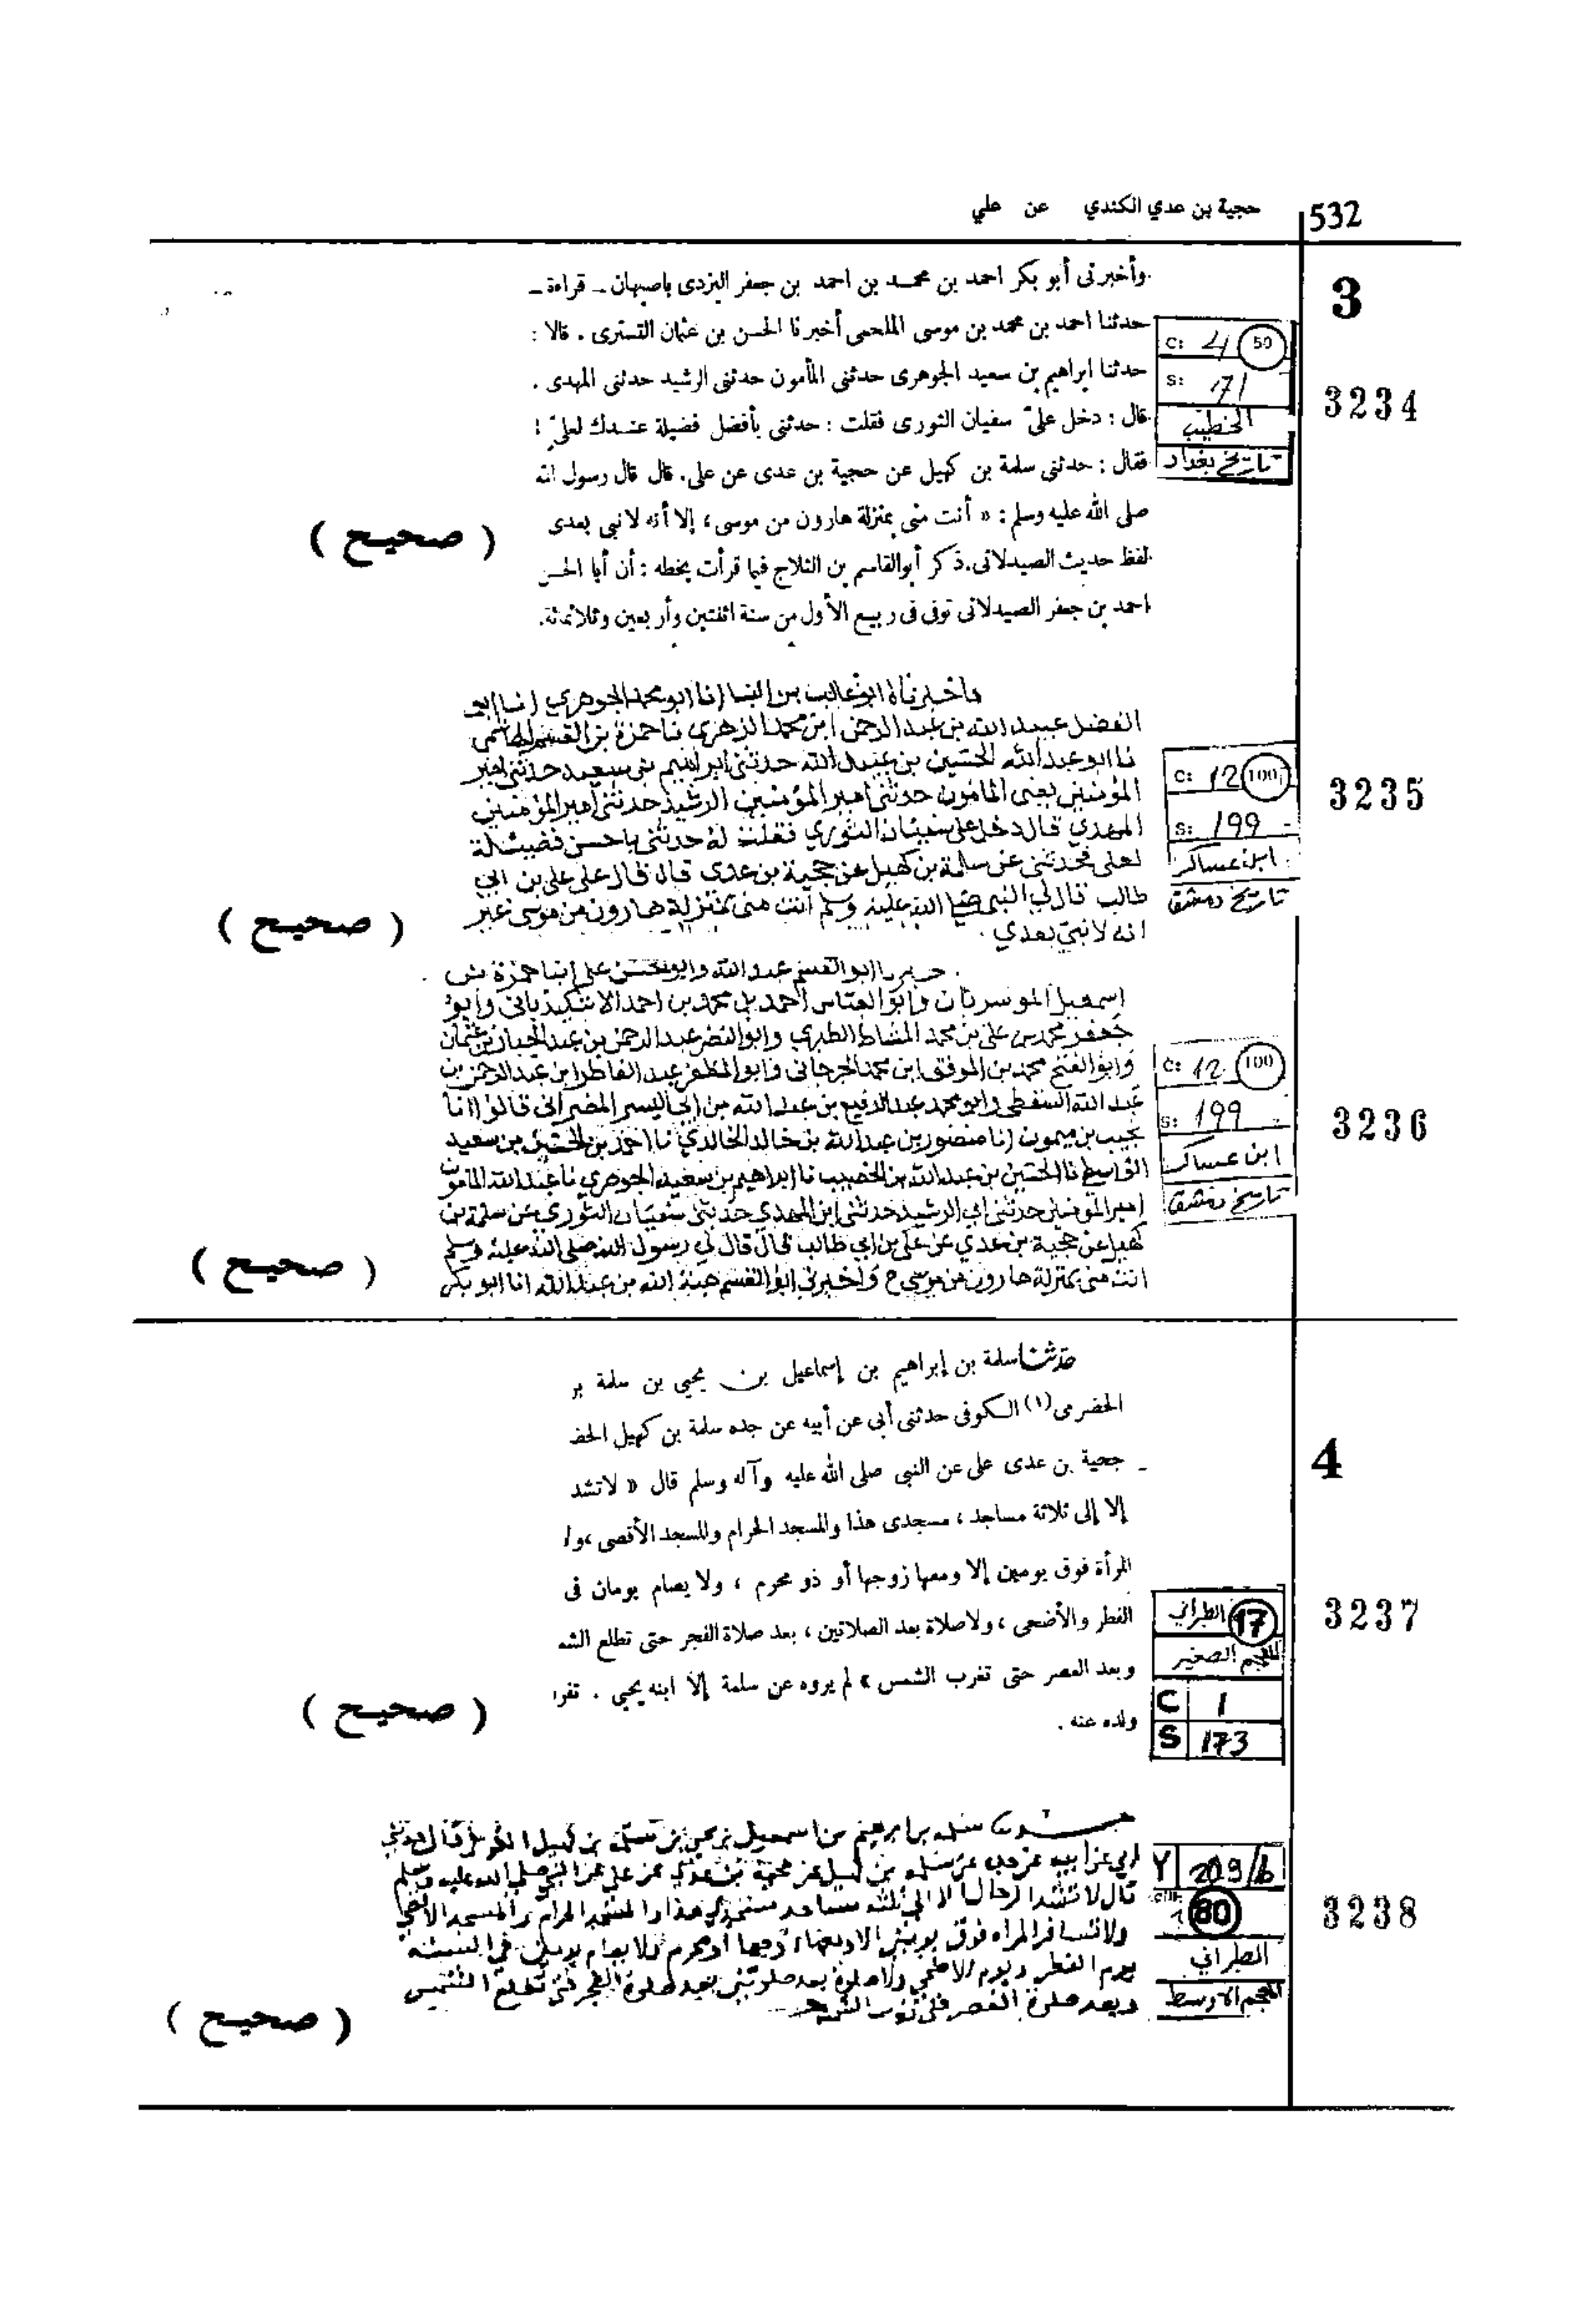 532
حجية بن عدي الكندي عن علي
3
وأخبرنى أبو بكر احمد بن محمد بن احمد بن جعفر اليزدى باصبهان ـ قراءة ـ
حدثنا احمد بن محمد بن موسى الملحمى أخبرنا الحسن بن عثمان التسترى . قالا :
حدثنا ابراهيم بن سعيد الجوهرى حدثنى المأمون حدثنى الرشيد حدثنى المهدى .
قال : دخل علىّ سفيان الثورى فقلت : حدثنى بأفضل فضيلة عندك لعلىّ !
فقال : حدثنى سلمة بن كهيل عن حجية بن عدى عن على . قال قال رسول الله
صلى الله عليه وسلم : « أنت منى بمنزلة هارون من موسى ، إلا أنه لا نبى بعدى
لفظ حديث الصيدلانى . ذكر أبو القاسم بن الثلاج فيما قرأت بخطه : أن أبا الحسن
احمد بن جعفر الصيدلانى توفى فى ربيع الأول من سنة اثنتين وأربعين وثلاثمائة .
( صحيح )
C: 4 50
S: 171
الخطيب
تاريخ بغداد
3234
فاخبرناه ابو غالب بن البنا انا ابو محمد الجوهري انا ابو
الفضل عبيد الله بن عبد الرحمن ابن محمد الزهرى نا حمزة بن القسم الهاشمى
نا ابو عبد الله الحسين بن عبيد الله حدثنى ابراهيم بن سعيد حدثنى امير
المؤمنين يعنى المامون حدثنى امير المؤمنين الرشيد حدثنى امير المؤمنين
المهدي قال دخل على سفيان الثوري فقلت له حدثنى باحسن فضيلة
لعلى فحدثنى عن سلمة بن كهيل عن حجية بن عدى قال قال على على بن ابي
طالب قال لي النبى صلى الله عليه وسلم أنت منى بمنزلة هارون من موسى غير
انه لا نبي بعدي .
( صحيح )
C: 12 100
S: 199
ابن عساكر
تاريخ دمشق
3235
ابو القسم عبد الله وابو الحسن على ابنا حمزة بن
اسمعيل الموسويان وابو العباس احمد بن محمد بن احمد وابو
جعفر محمد بن على بن محمد المشاط الطبري وابو النضر عبد الرحمن بن عبد الجبار بن عثمان
وابو الفتح محمد بن الموفق ابن محمد الجرجانى وابو المظفر عبد الفاطر ابن عبد الرحمن بن
عبد الله السقطى وابو محمد عبد الرفيع بن عبد الله بن ابي اليسر قالوا انا
نجيب بن ميمون انا منصور بن عبد الله بن خالد الخالدي نا احمد بن الحسين بن سعيد
نا الحسين بن عبد الله بن الخصيب نا ابراهيم بن سعيد الجوهري نا عبد الله المامون
امير المؤمنين حدثنى ابي الرشيد حدثنى ابن المهدي حدثنى سفيان الثوري عن سلمة بن
كهيل عن حجية بن عدي عن على بن ابي طالب قال قال لي رسول الله صلى الله عليه وسلم
انت منى بمنزلة هارون من موسى ح واخبرني ابو القسم هبة الله بن عبد الله انا ابو بكر
( صحيح )
C: 12 100
S: 199
ابن عساكر
تاريخ دمشق
3236
4
حدثنا سلمة بن إبراهيم بن إسماعيل بن يحيى بن سلمة بر
الحضرمى (١) الكوفى حدثنى أبى عن أبيه عن جده سلمة بن كهيل الحضـ
ـ حجية بن عدى على عن النبى صلى الله عليه وآله وسلم قال « لا تشد
إلا إلى ثلاثة مساجد ، مسجدى هذا والمسجد الحرام والمسجد الأقصى ، ولا
المرأة فوق يومين إلا ومعها زوجها أو ذو محرم ، ولا يصام يومان فى
الفطر والأضحى ، ولا صلاة بعد الصلاتين ، بعد صلاة الفجر حتى تطلع الشمـ
وبعد العصر حتى تغرب الشمس » لم يروه عن سلمة إلا ابنه يحيى . تفر
ولده عنه .
( صحيح )
17 الطبراني
المعجم الصغير
C 1
S 173
3237
سلمه بن ابرهيم بن اسمعيل بن يحيى بن سلمة بن كهيل قال حدثني
ابي عن ابيه عن جده عن سلمه بن كهيل عن حجية بن عدي عن علي عن النبي صلى الله عليه وسلم
قال لا تشد الرحال الا الى ثلثة مساجد مسجدي هذا والمسجد الحرام والمسجد الاقصى
ولا تسافر المراه فوق يومين الا ومعها زوجها أو محرم ولا يصام يومين في السنة
يوم الفطر ويوم الاضحى ولا صلوة بعد صلوتين بعد صلوة الفجر حتى تطلع الشمس
وبعد صلوة العصر حتى تغرب الشمس
( صحيح )
Y 209/b
80
الطبراني
المعجم الاوسط
3238